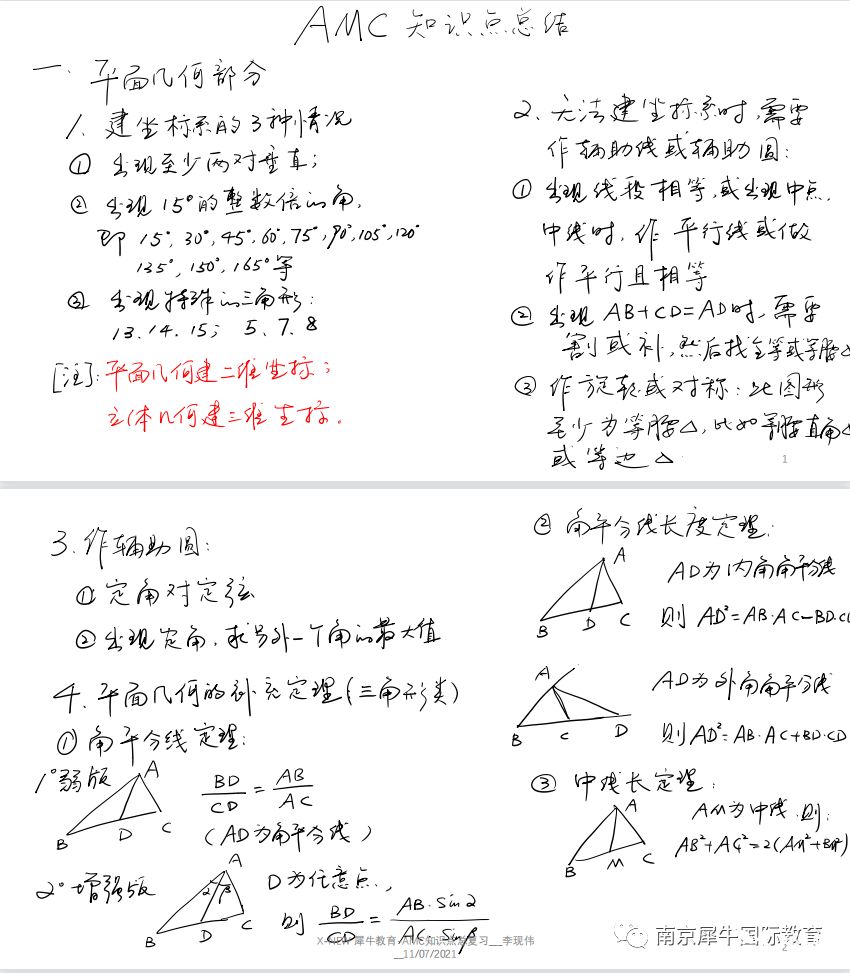 AMC 知识点总结
一. 平面几何部分
1. 建坐标系的3种情况
① 出现至少两对垂直;
② 出现15°的整数倍的角,
即 15°, 30°, 45°, 60°, 75°, 90°, 105°, 120°
135°, 150°, 165° 等
③ 出现特殊的三角形:
13. 14. 15; 5. 7. 8
[注]: 平面几何建二维坐标;
立体几何建三维坐标.
2. 无法建坐标系时, 需要
作辅助线或辅助圆:
① 出现线段相等, 或出现中点,
中线时, 作 平行线或做
作平行且相等
② 出现 AB+CD=AD时, 需要
割或补, 然后找全等或等腰△
③ 作旋转或对称: 此图形
至少为等腰△, 比如等腰直角△
或等边△
1
3. 作辅助圆:
① 定角对定弦
② 出现定角, 求另外一个角的最大值
4. 平面几何的补充定理(三角形类)
① 角平分线定理:
1° 弱版
A
B
D
C
BD/CD = AB/AC
(AD为角平分线)
2° 增强版
A
α β
B
D
C
D为任意点,
则 BD/CD = AB·sinα/AC·sinβ
② 角平分线长度定理:
A
B
D
C
AD为内角角平分线
则 AD²=AB·AC-BD·CD
A
B
C
D
AD为外角角平分线
则AD²=AB·AC+BD·CD
③ 中线长定理:
A
B
M
C
AM为中线, 则:
AB²+AC²=2(AM²+BM²)
X-NEW 犀牛教育-AMC知识点总复习__李现伟
__11/07/2021
南京犀牛国际教育
2